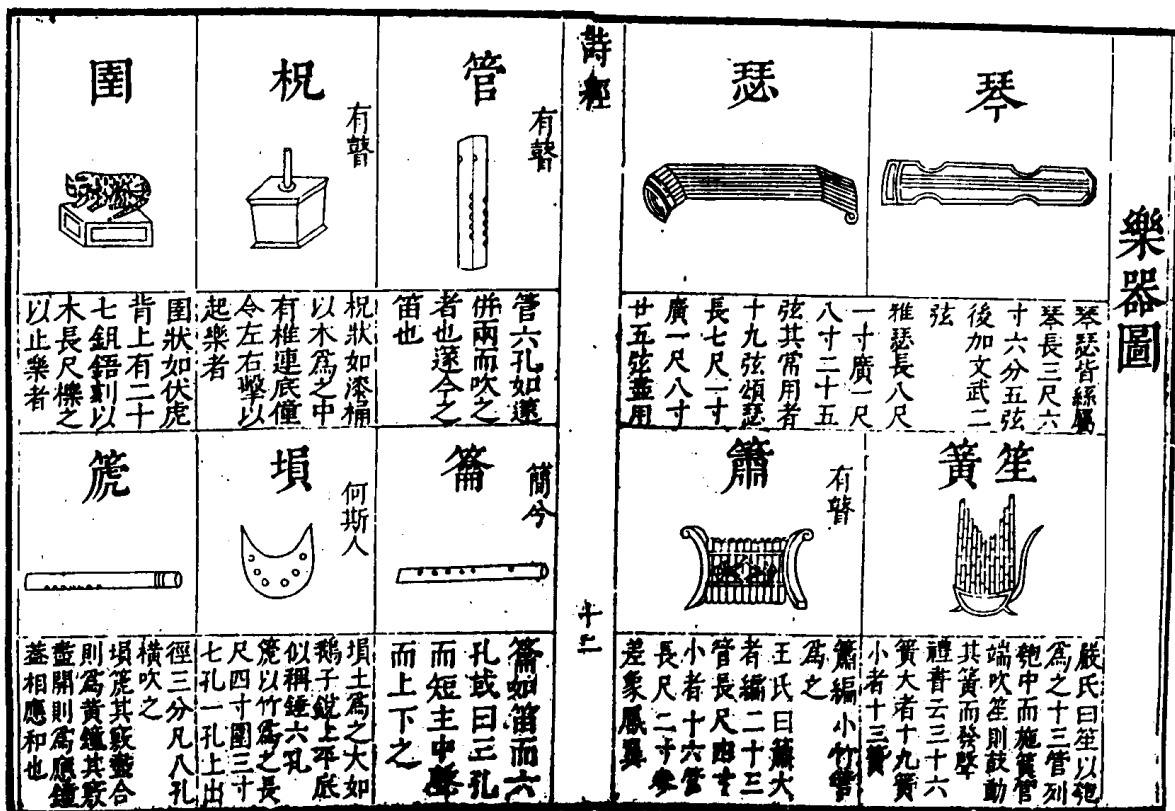 樂器圖
琴
琴瑟皆絲屬
琴長三尺六
寸六分五弦
後加文武二
弦
瑟
雅瑟長八尺
一寸廣一尺
八寸二十五
弦其常用者
十九弦頌瑟
長七尺一寸
廣一尺八寸
廿五弦盡用
笙簧
嚴氏曰笙以匏
爲之十三管列
匏中而施簧管
端吹笙則鼓動
其簧而發聲
禮書云三十六
簧大者十九簧
小者十三簧
簫
有瞽
簫編小竹管
爲之
王氏曰簫大
者編二十三
管長尺四寸
小者十六管
長尺二寸參
差象鳳翼
詩經
管
有瞽
管六孔如篴
併兩而吹之
者也篴今之
笛也
柷
有瞽
柷狀如漆桶
以木爲之中
有椎連底僮
令左右擊以
起樂者
圉
圉狀如伏虎
背上有二十
七鉏鋙刻以
木長尺櫟之
以止樂者
籥
簡兮
籥如笛而六
孔或曰三孔
而短主中聲
而上下之
塤
何斯人
塤土爲之大如
鵝子銳上平底
似稱錘六孔
篪
篪以竹爲之長
尺四寸圍三寸
七孔一孔上出
徑三分凡八孔
橫吹之
塤篪其竅盡合
則爲黃鐘其竅
盡開則爲應鐘
蓋相應和也